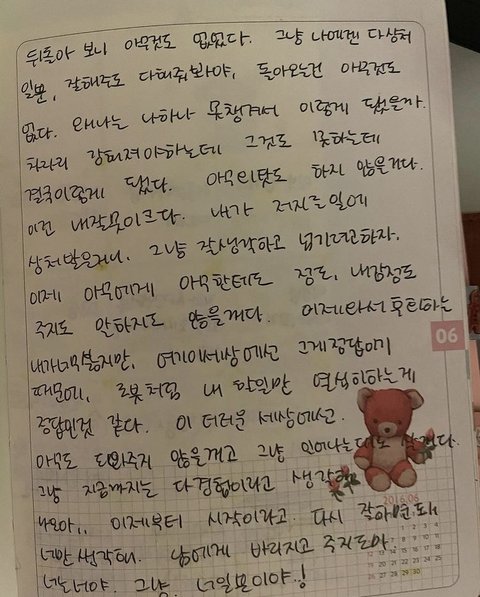 뒤돌아 보니 아무것도 없었다. 그냥 나에겐 다상처
일뿐, 잘해주도 다해줘봐야, 돌아오는건 아무것도
없다. 왜나는 나하나 못챙겨서 이렇게 됐을까.
차라리 강해져야하는데 그것도 못하는데
결국이렇게 됐다. 아무리탓도 하지 않을거다.
이건 내잘못이크다. 내가 저지른일에
상처받을거니, 그냥 잘생각하고 넘기려고하자.
이제 아무에게 아무한테도 정도, 내감정도
주지도 말하지도 않을꺼다. 이제와서 후회하는
내가너무웃지만, 여기이세상에선 그게정답이기
때문에, 로봇처럼 내 할일만 열심히하는게
정답인것 같다. 이 더러운 세상에선.
아무도 도와주지 않을꺼고 그냥
그냥 지금까지는 다경험이라고 생각
나오아,, 이제부터 시작이라고. 다시 잘하면돼
너만생각해. 남에게 바라지고 주지도마
너는너야. 그냥. 너일뿐이야.!
06
2016.06